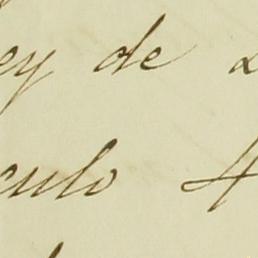 ey de 2
culo 4